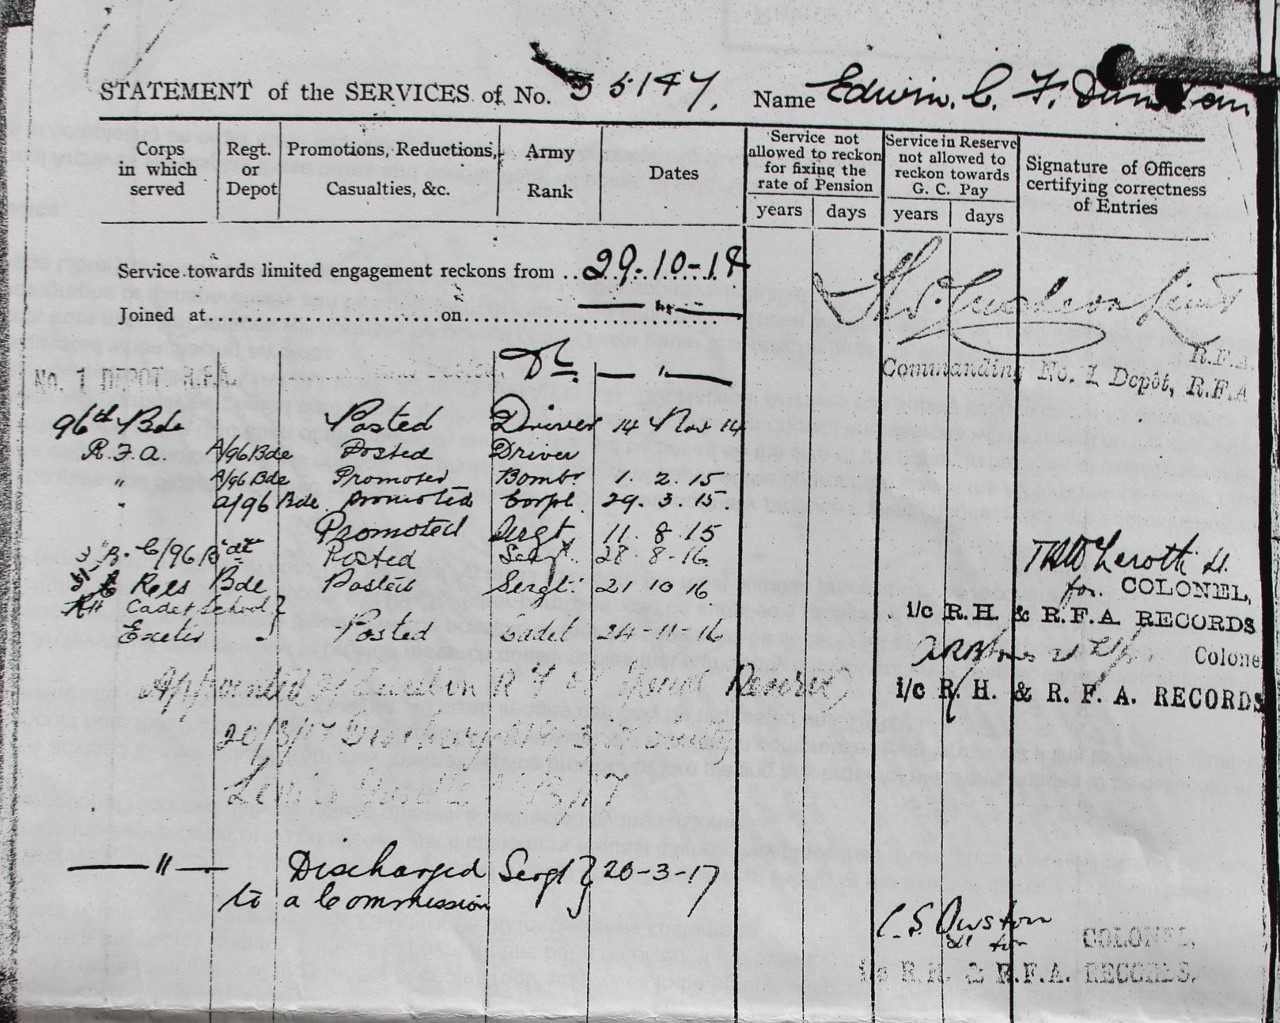 STATEMENT of the SERVICES of No. 35147. Name Edwin. C. F.
Corps in which served
Regt. or Depot
Promotions, Reductions, Casualties, &c.
Army Rank
Dates
Service not allowed to reckon for fixing the rate of Pension
years days
Service in Reserve not allowed to reckon towards G. C. Pay
years days
Signature of Officers certifying correctness of Entries
Service towards limited engagement reckons from .. 29-10-14
Joined at on
R.F.A.
No. 1 DEPOT R.F.A. — " —
Commanding No. 1 Depôt, R.F.A
96th Bde Posted Driver 14 Nov 14
R.F.A. A/96 Bde Posted Driver
" A/96 Bde Promoted Bombr 1. 2. 15
" a/96 Bde promoted Corpl. 29. 3. 15
Promoted Sergt. 11. 8. 15
C/96 Posted Sergt. 28 8-16
Res Bde Posted Sergt. 21 10 16
for COLONEL,
Cadet School
i/c R.H. & R.F.A RECORDS
Exeter Posted Cadet 24-11-16
Colonel
Appointed R F A Reserve
i/c R.H. & R.F.A. RECORDS
20/3/17
— " — Discharged Sergt } 20-3-17
to a Commission
C. S. Owston
Lt for COLONEL.
i/c R.H. & R.F.A. RECORDS.